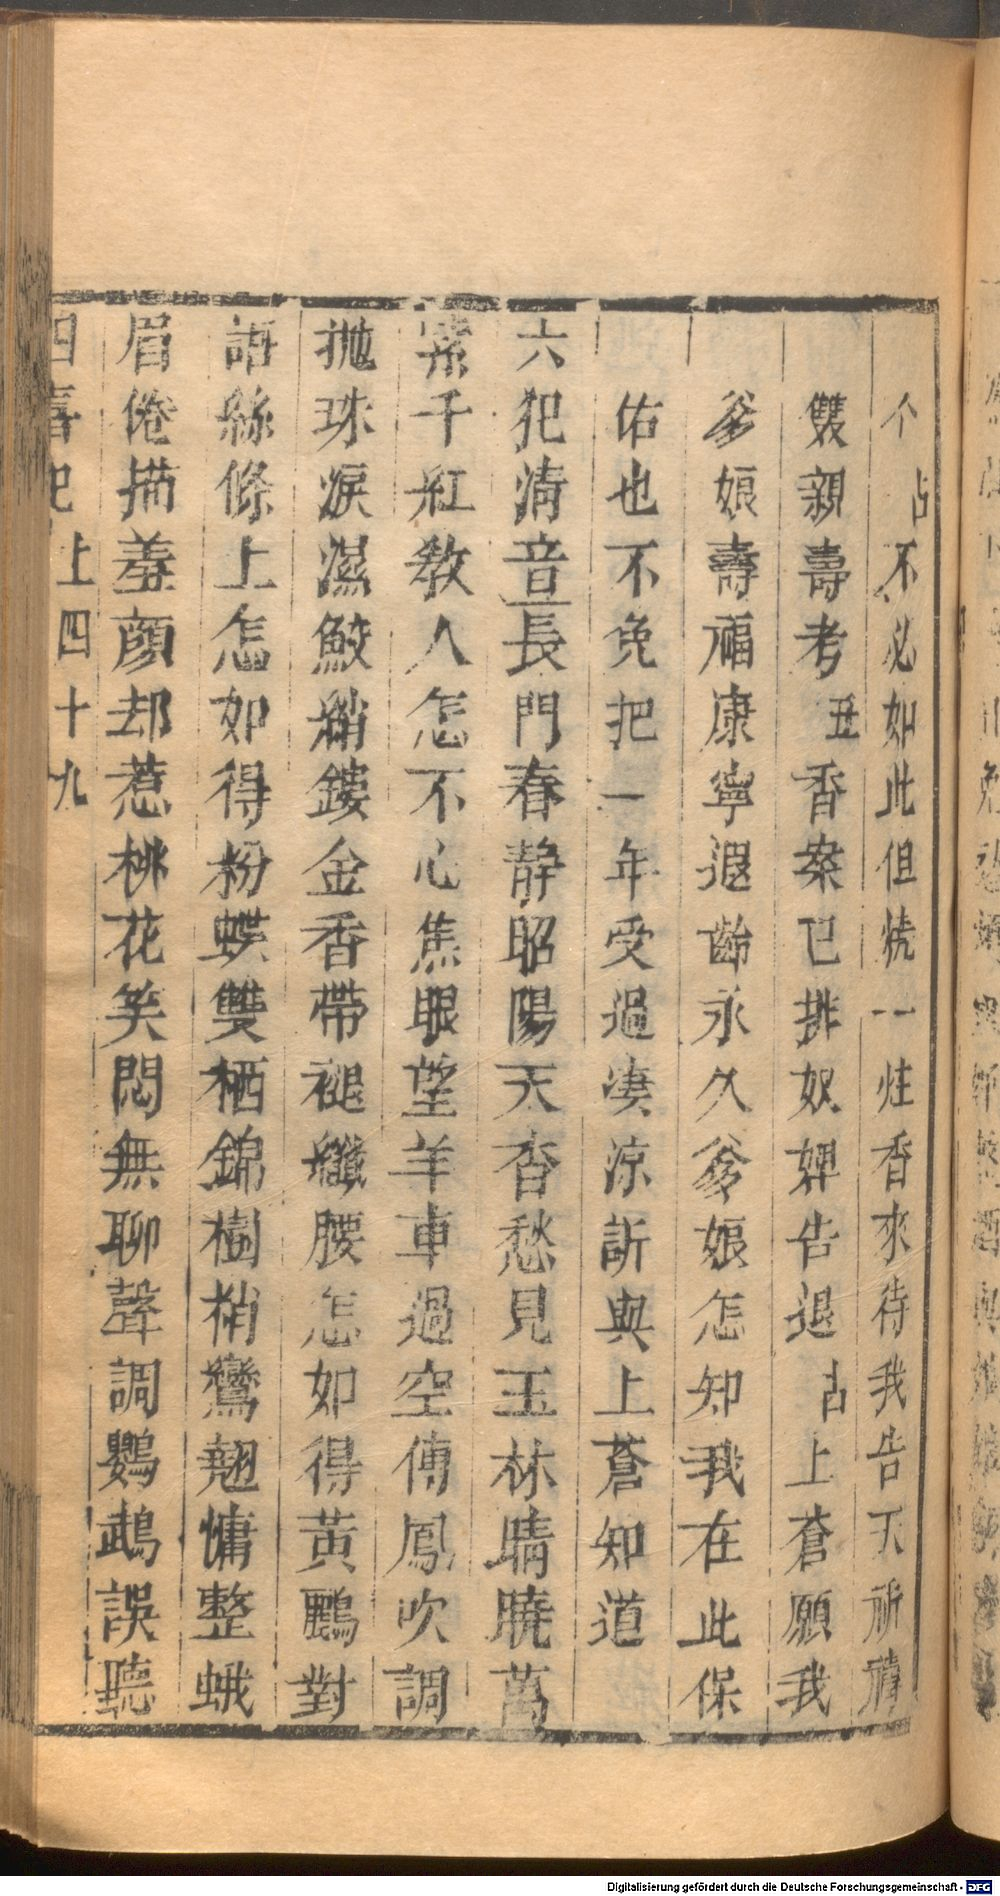 个占不必如此但燒一炷香來待我告天祈禱
雙親壽考丑香案已排奴婢告退占上蒼願我
爹娘壽福康寧遐齡永久爹娘怎知我在此保
佑也不免把一年受過凄涼訴與上蒼知道
六犯淸音長門春靜昭陽天杳愁見玉林晴曉萬
紫千紅敎人怎不心焦眼望羊車過空傳鳳吹調
抛珠淚濕鮫綃鏤金香帶褪纖腰怎如得黃鸝對
語絲條上怎如得粉蝶雙栖錦樹梢鸞翹慵整蛾
眉倦描羞顔却惹桃花笑悶無聊聲調鸚鵡誤聽
四喜記 上四十九
Digitalisierung gefördert durch die Deutsche Forschungsgemeinschaft - DFG